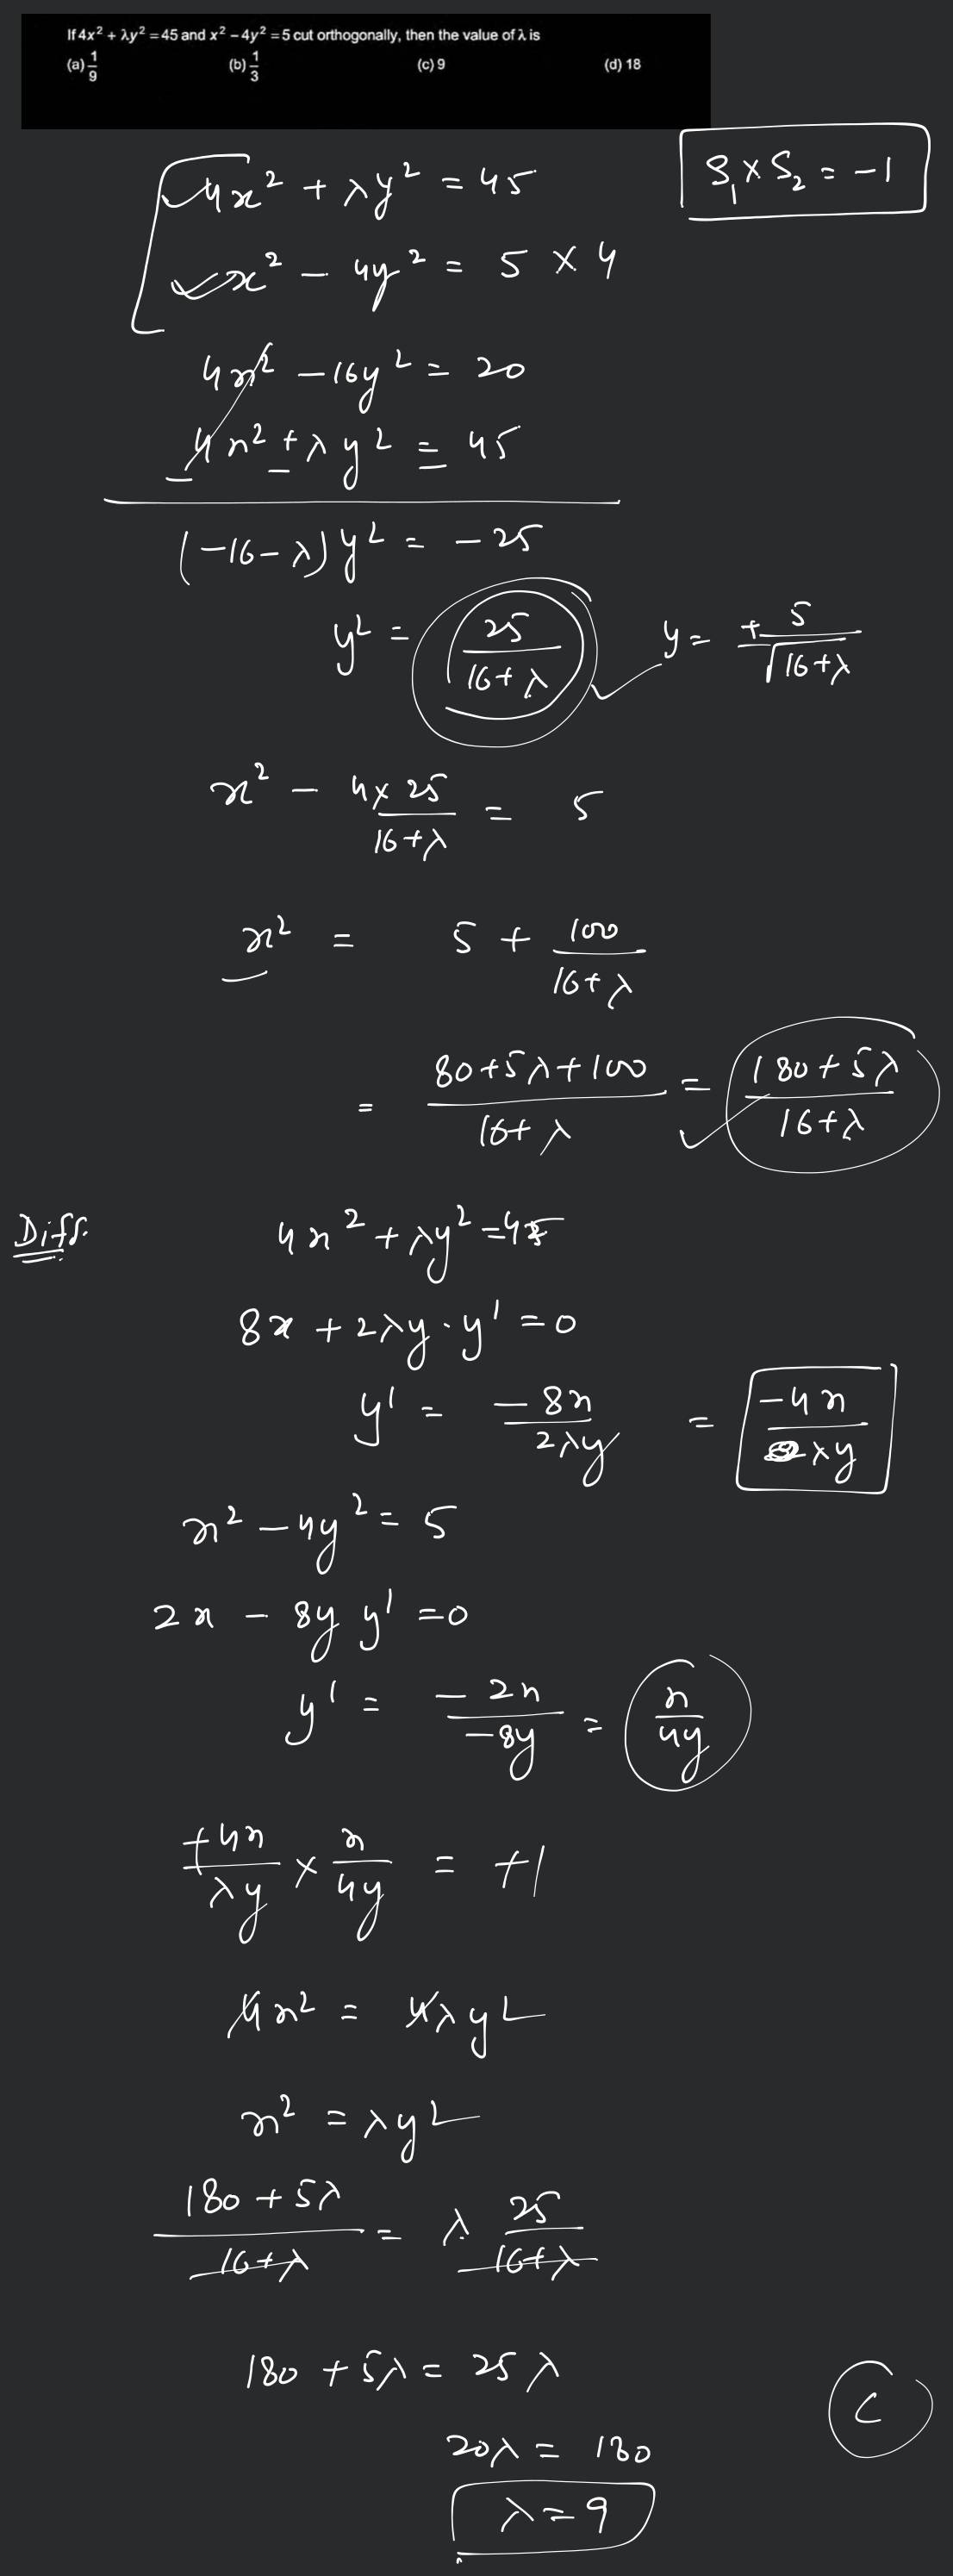 If 4x² + λy² = 45 and x² – 4y² = 5 cut orthogonally, then the value of λ is
(a) 1/9 (b) 1/3 (c) 9 (d) 18
S₁ × S₂ = -1
4x² + λy² = 45
x² - 4y² = 5 × 4
4x² - 16y² = 20
4x² + λy² = 45
(-16-λ)y² = -25
y² = 25/(16+λ) y = ± 5/√(16+λ)
x² - (4×25)/(16+λ) = 5
x² = 5 + 100/(16+λ)
= (80+5λ+100)/(16+λ) = (180+5λ)/(16+λ)
Diff. 4x² + λy² = 45
8x + 2λy · y' = 0
y' = -8x/2λy = -4x/λy
x² - 4y² = 5
2x - 8y y' = 0
y' = -2x/-8y = x/4y
+4x/λy × x/4y = +1
4x² = 4λy²
x² = λy²
(180+5λ)/(16+λ) = λ 25/(16+λ)
180 + 5λ = 25λ
C
20λ = 180
λ = 9